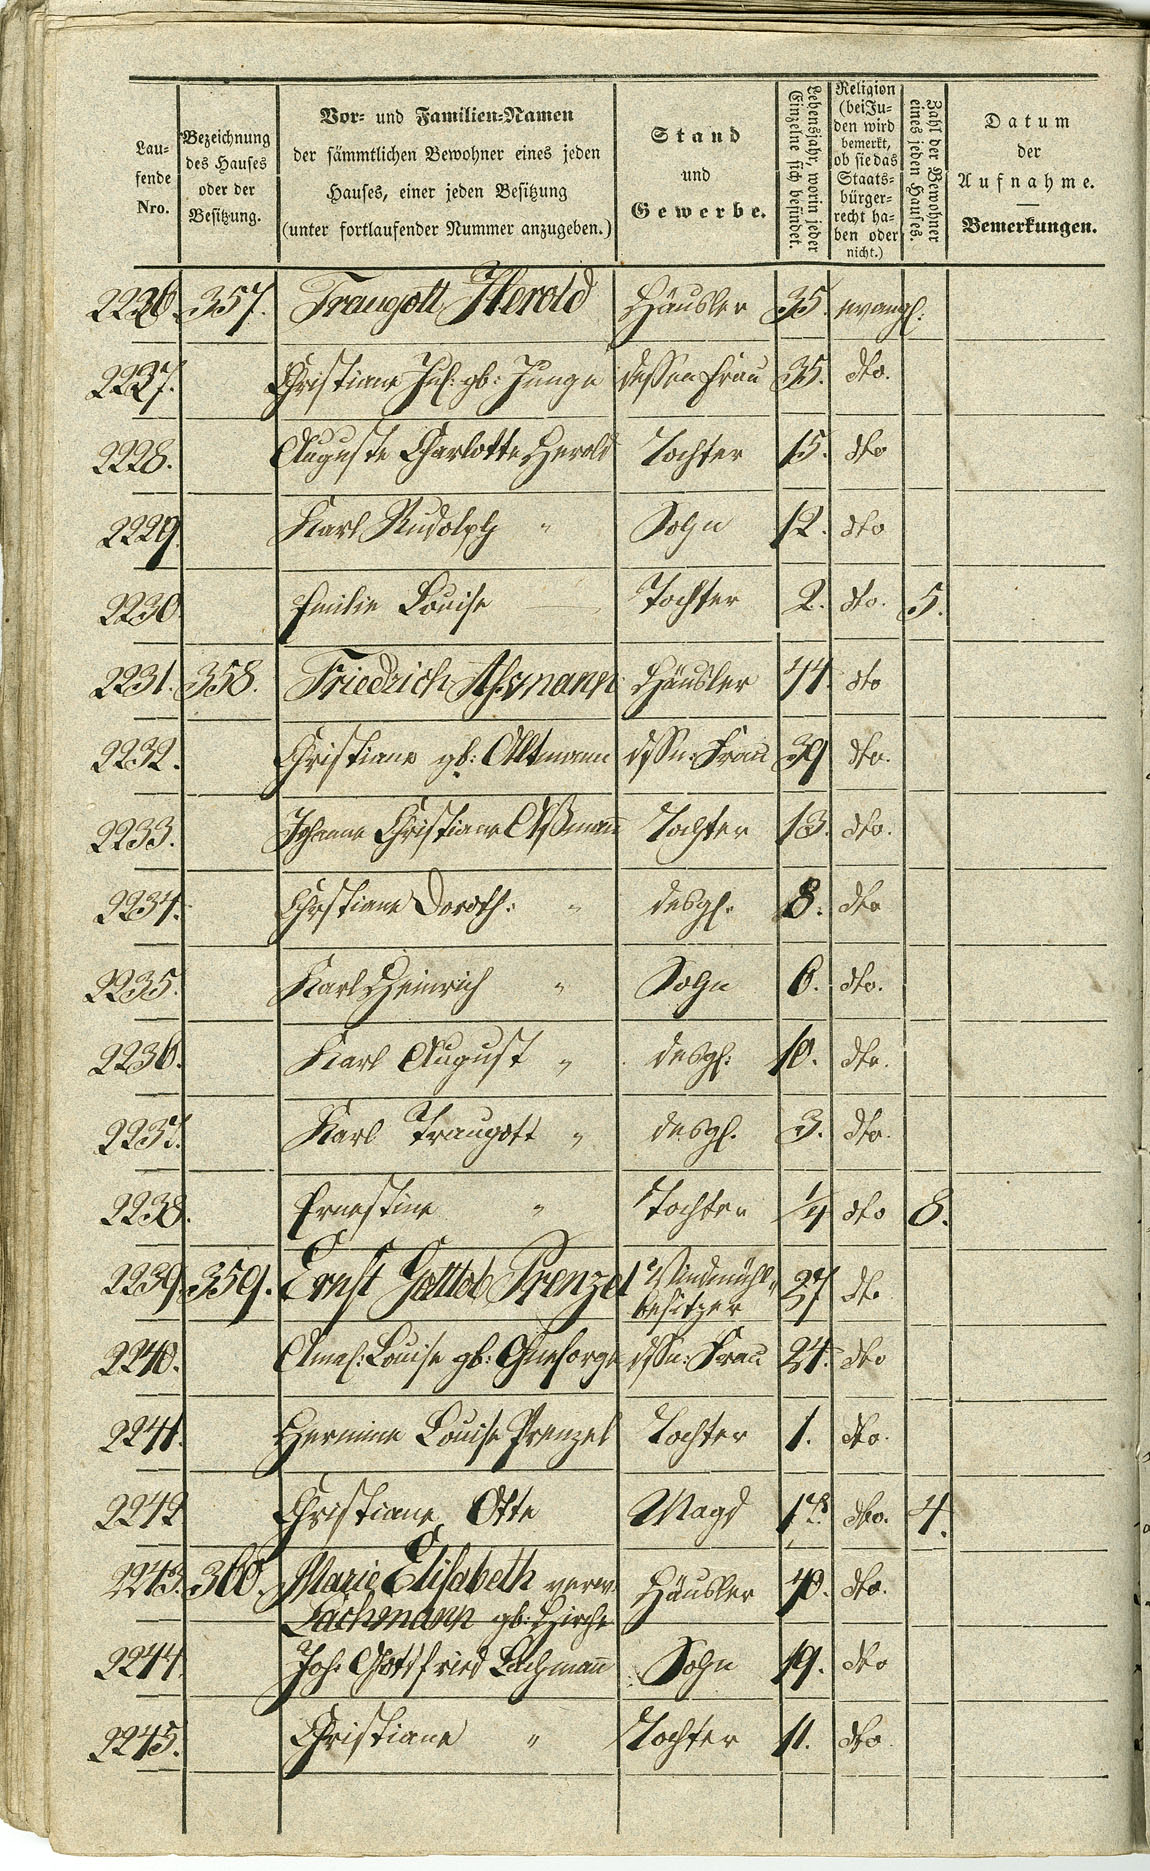 Lau-
fende
Nro.
Bezeichnung
des Hauses
oder der
Besitzung.
Vor- und Familien-Namen
der sämmtlichen Bewohner eines jeden
Hauses, einer jeden Besitzung
(unter fortlaufender Nummer anzugeben.)
Stand
und
Gewerbe.
Lebensjahr, worin jeder
Einzelne sich befindet.
Religion
(bei Ju-
den wird
bemerkt,
ob sie das
Staats-
bürger-
recht ha-
ben oder
nicht.)
Zahl der Bewohner
eines jeden Hauses.
Datum
der
Aufnahme.
Bemerkungen.
2226. 357. Traugott Herold Häusler 35. evangl.
2227. Christiane gb: Junge dessen Frau 35. dto.
2228. Auguste Charlotte Herold Tochter 15. dto
2229 Karl Rudolph " Sohn 12. dto
2230. Emilie Louise Tochter 2. dto. 5.
2231. 358. Friedrich Assmann Häusler 44. dto
2232. Christiane gb: Altmann dssn: Frau 39 dto.
2233. Johanne Christiane Aßmann Tochter 13. dto.
2234. Christiane Doroth: " desgl. 8. dto
2235. Karl Heinrich " Sohn 6. dto.
2236. Karl August " desgl: 10. dto.
2237. Karl Traugott " desgl. 3. dto.
2238. Ernestine " Tochter 1/4 dto 8.
2239. 359. Ernst Gottlob Prenzel Windmühl-
besitzer 27 dto
2240. Louise gb: Ohnesorge dssn: Frau 24. dto
2241. Hermine Louise Prenzel Tochter 1. dto.
2242 Christiane Otte Magd dto. 4.
2243. 360. Marie Elisabeth verw.
Lachmann gb: Hirche Häusler 40. dto.
2244. Joh. Gottfried Lachmann Sohn 19. dto
2245. Christiane " Tochter 11. dto.